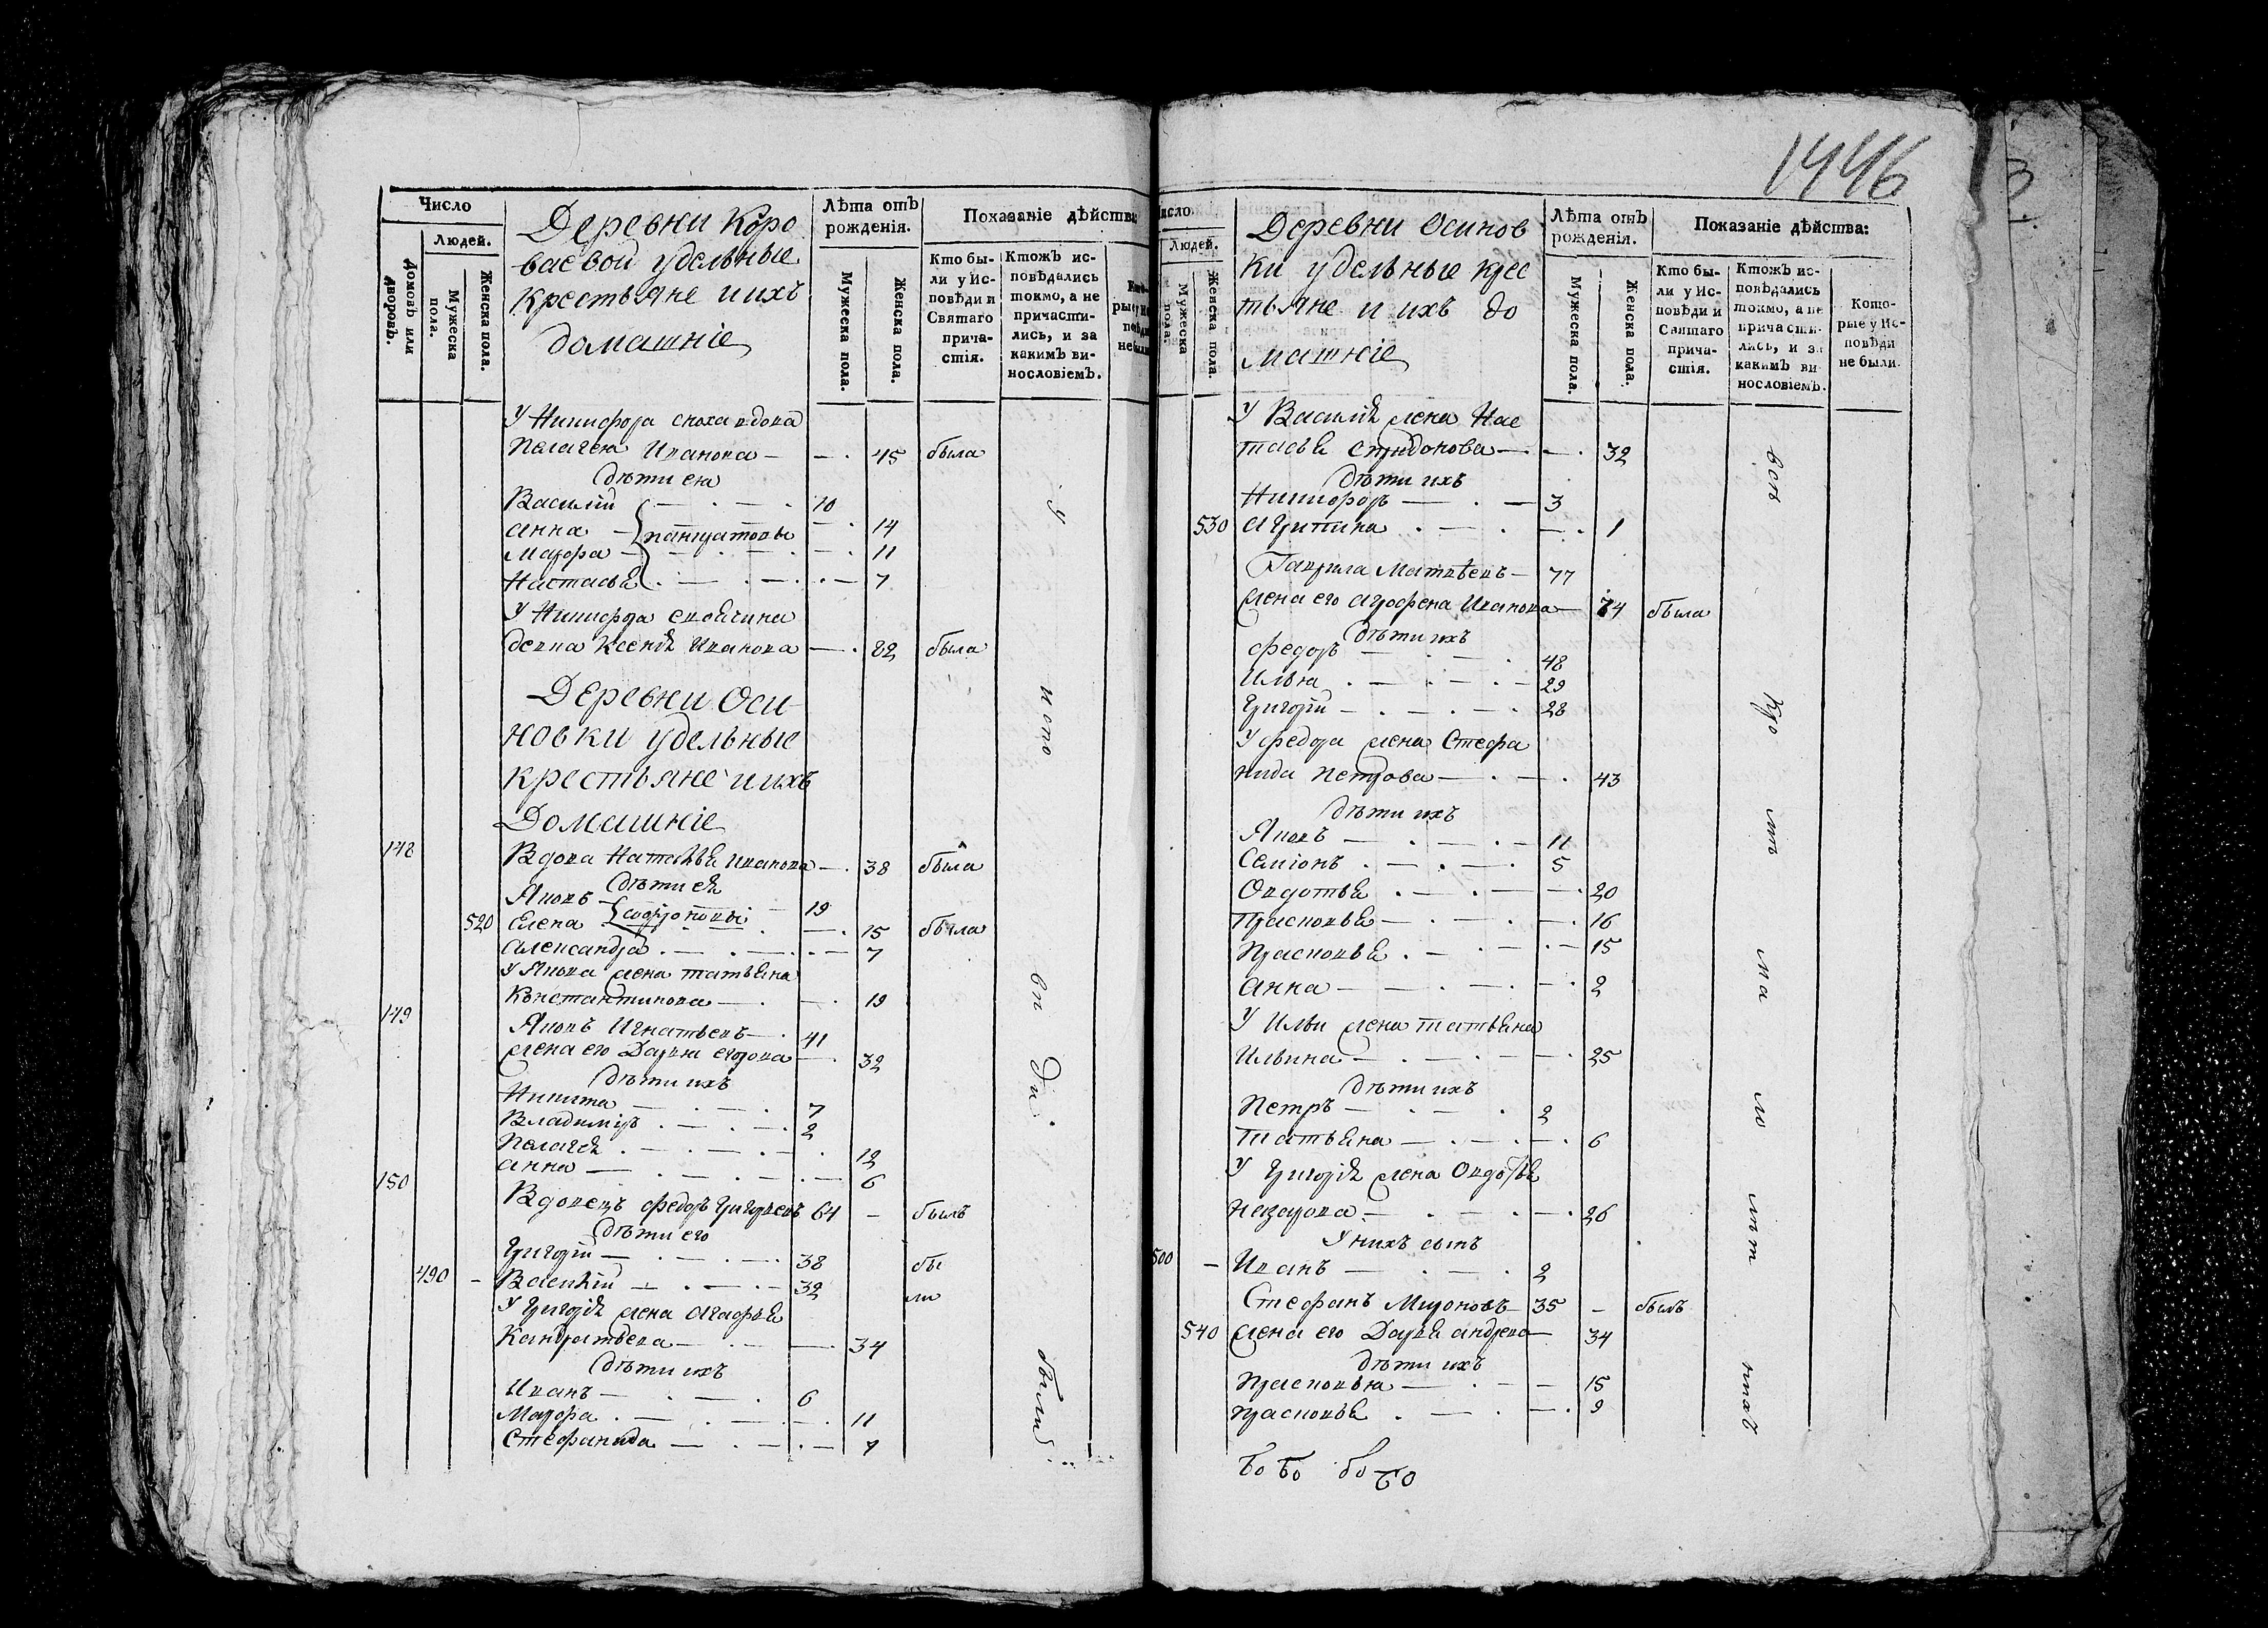 1446
Число
Людей.
Домовъ или дворовъ.
Мужеска пола.
Женска пола.
Деревни Коро
ваевой удельные
крестьяне и ихъ
домашніе
Лѣта отъ рожденія.
Мужеска пола.
Женска пола.
Показаніе дѣйства:
Кто бы-
ли у Ис-
повѣди и
Святаго
прича-
стія.
Ктожъ ис-
повѣдались
токмо, а не
причасти-
лись, и за
какимъ ви-
нословіемъ.
У Никифора сноха вдова
Пелагея Иванова — 45 была
дѣти ея
Василій 10
Анна 14
Марфа 11
Настасья 7
У Никифора
Ксенія Иванова — 82 была
Деревни Оси-
новки удельные
крестьяне и ихъ
Домашніе
148 Вдова Наталья Иванова — 38 была
дѣти ея
Яковъ 19
520 Елена 15 была
Александра 7
У Якова жена татьяна
Константинова — 19
149 Яковъ Игнатьевъ — 41
жена его Дарья егорова — 32
дѣти ихъ
Никита 7
Владимиръ 2
Пелагея 12
анна 6
150 Вдовецъ федоръ Григорьевъ 64 — былъ
дѣти его
Григорій 38 бы
490 — Василій 32 ли
У Григорія жена Агафья
Кандратьева — 34
дѣти ихъ
Иванъ 6
Марфа 11
Стефанида 7
Число.
Людей.
Мужеска пола.
Женска пола.
Деревни Осинов
ки удельные крес
тьяне и ихъ до
машніе
Лѣта отъ рожденія.
Мужеска пола.
Женска пола.
Показаніе дѣйства:
Кто бы-
ли у Ис-
повѣди и
Святаго
прича-
стія.
Ктожъ ис-
повѣдались
токмо, а не
причасти-
лись, и за
какимъ ви
нословіемъ.
Кото-
рые у Ис-
повѣди
не были.
У Василія жена Нас
тасья Спиридонова — 32
дѣти ихъ
Никифоръ 3
530 Агрипина 1
Гаврила Матвѣевъ — 77
жена его Агрофена Иванова — 74 была
дѣти ихъ
федоръ 48
Илья 29
Григорій 28
У федора жена Стефа
нида Петрова — 43
дѣти ихъ
Яковъ 11
Семіонъ 5
Овдотья 20
Прасковья 16
Прасковья 15
Анна 2
У Ильи жена татьяна
Ильина — 25
дѣти ихъ
Петръ 2
Татьяна 6
У Григорія жена Овдотья
Назарова — 26
У нихъ сынъ
500 — Иванъ 2
Стефанъ Мироновъ — 35 — былъ
540 жена его Дарья андреева — 34
дѣти ихъ
Прасковья 15
прасковья 9